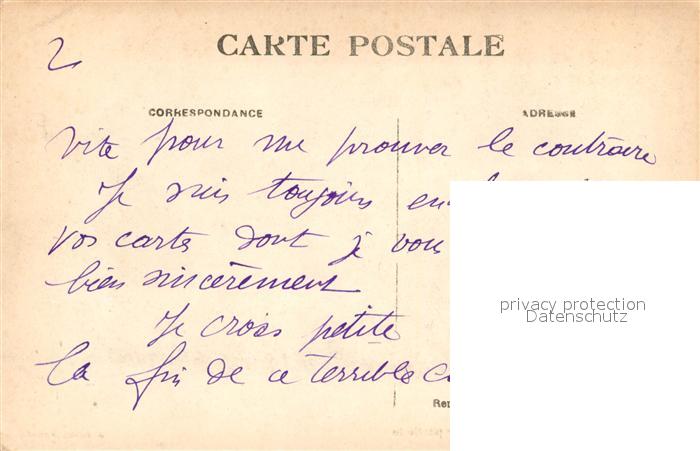 2
CARTE POSTALE
CORRESPONDANCE
ADRESSE
vite pour me prouver le contraire
Je suis toujours
vos cartes dont je vous
bien sincèrement
Je crois petite
la fin de ce terrible
privacy protection
Datenschutz